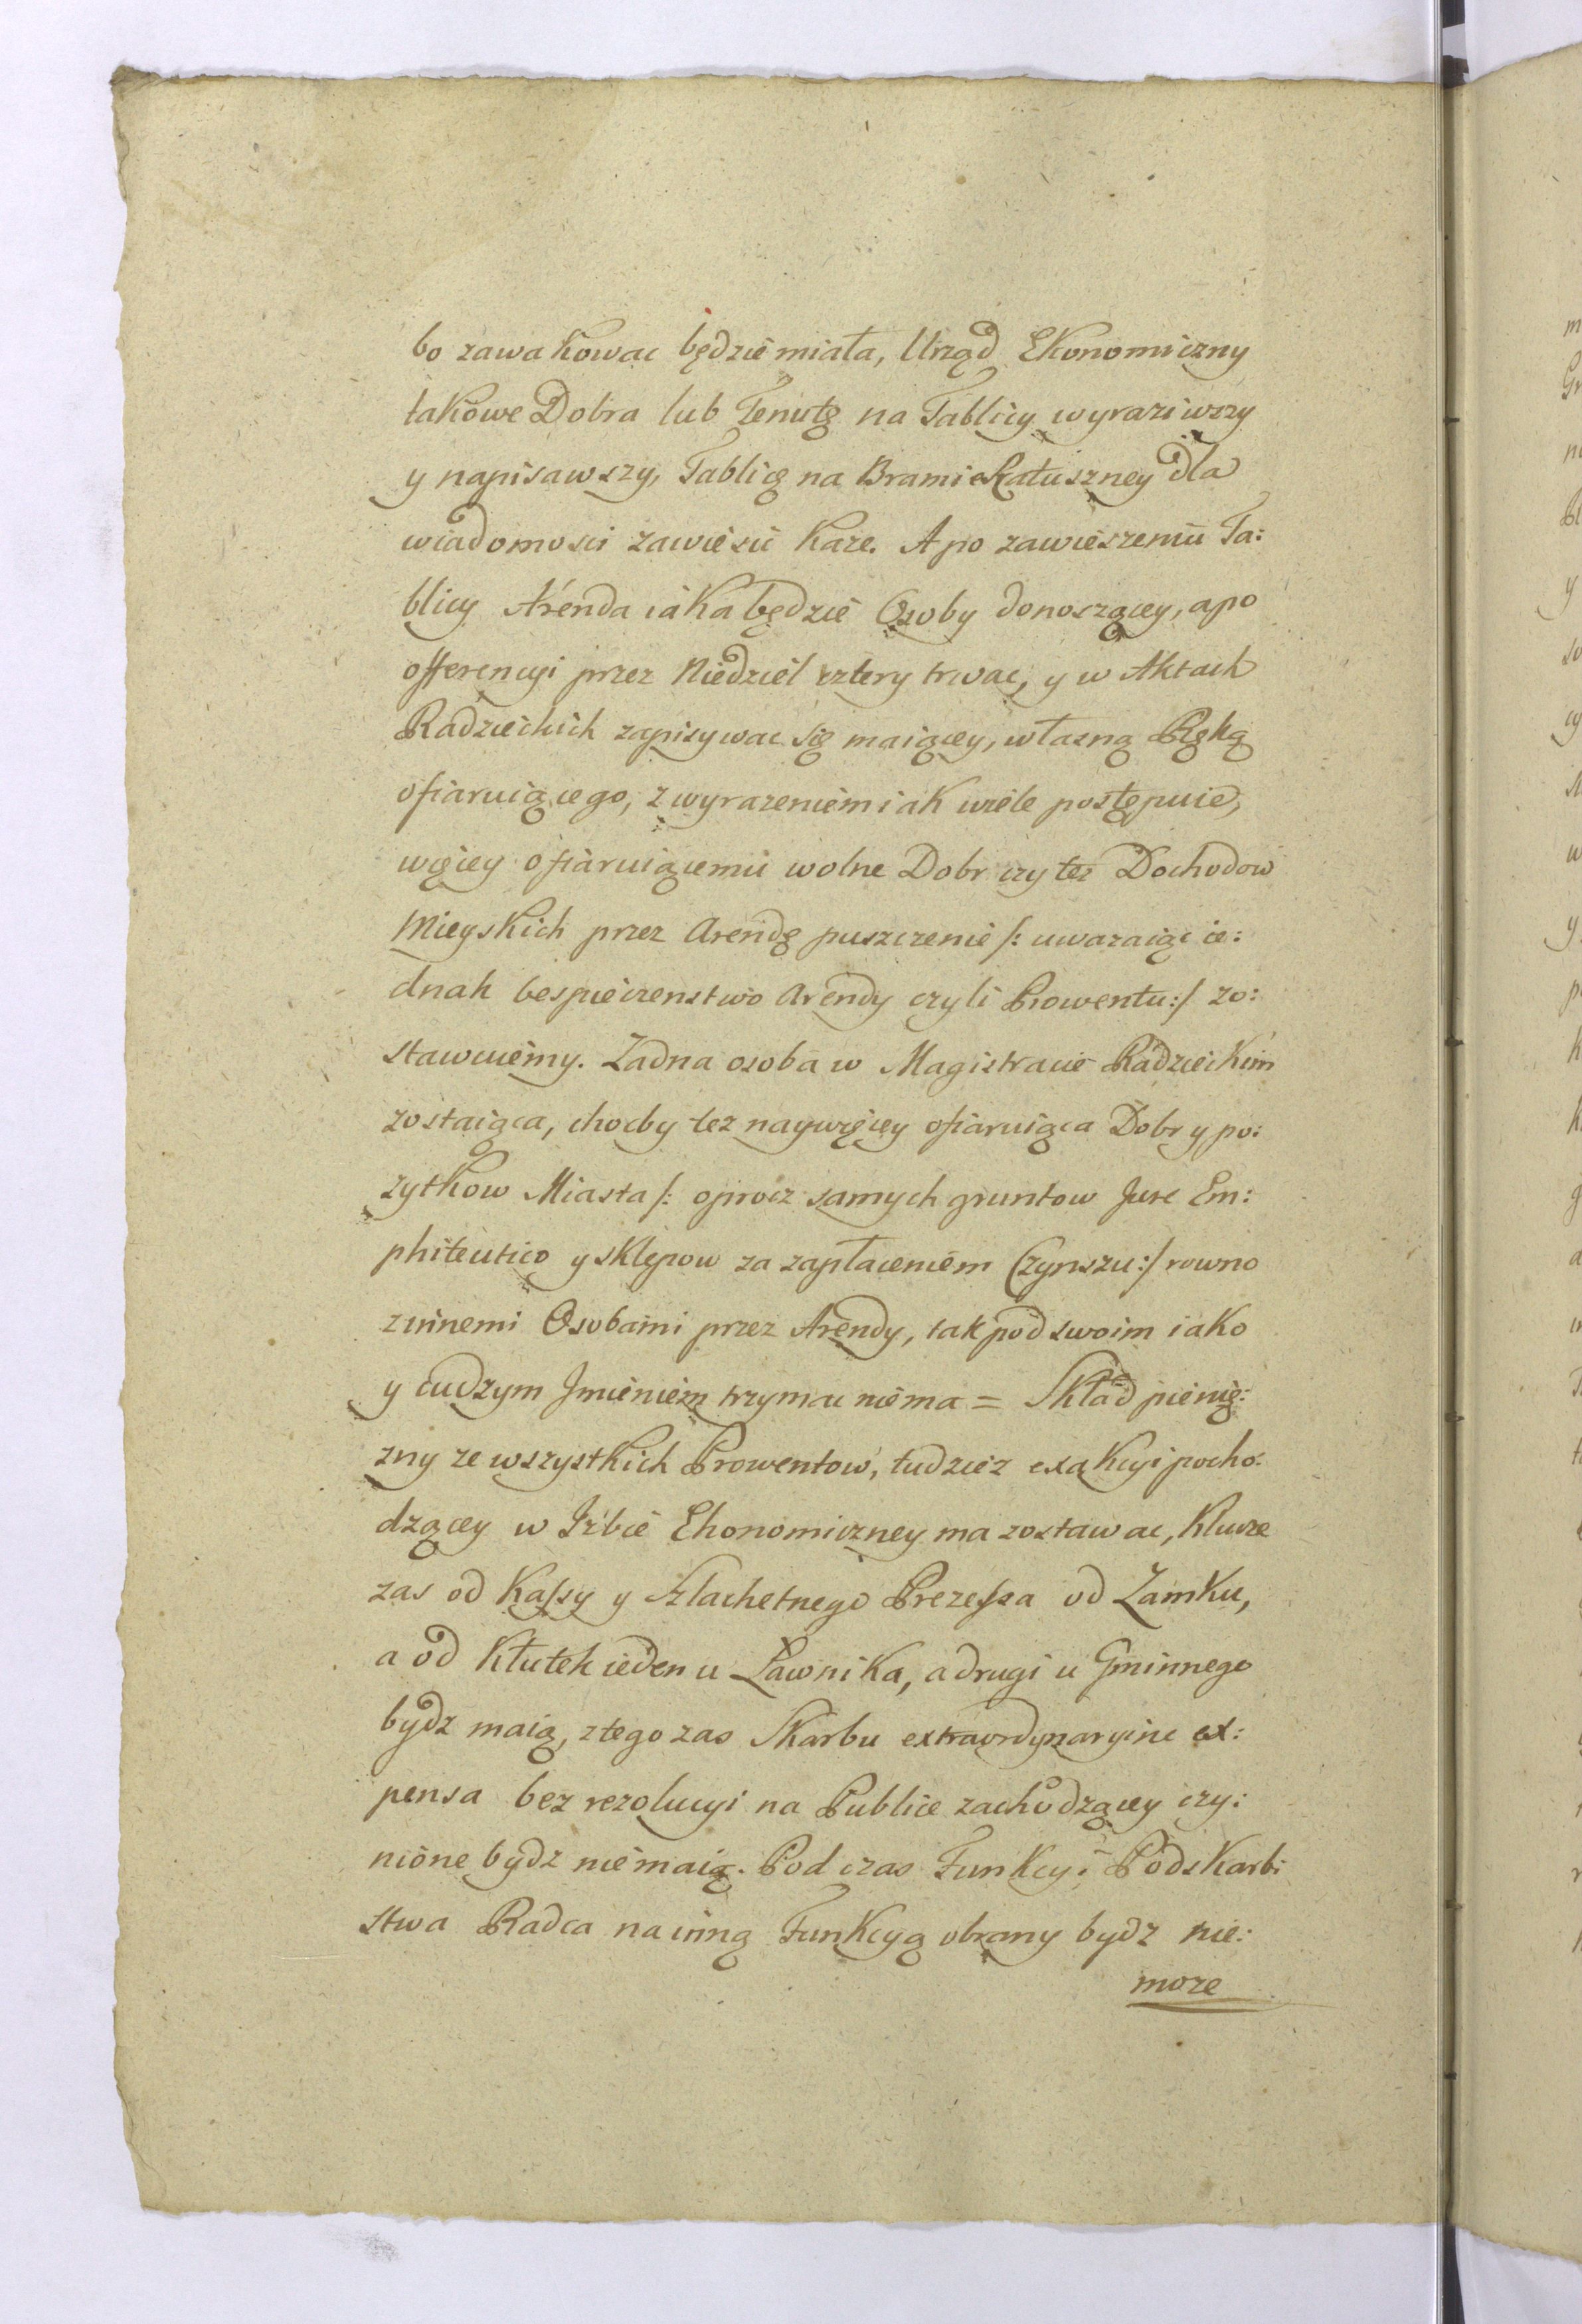 bo zawakowac będzie miała, Urząd Ekonomiczny
takowe Dobra lub Tenutę na Tablicy wyraziwszy
y napisawszy, Tablicę na Bramie Ratuszney dla
wiadomosci zawiesić każe. A po zawieszeniu Ta:
blicy Arenda iaka będzie Osoby donoszącey, a po
offerencyi przez Niedziel cztery trwac, y w Aktach
Radzieckich zapisywac się maiącey, własną Ręką
ofiaruiącego, z wyrazeniem iak wiele postępuie,
więcey ofiaruiącemu wolne Dobr czy tez Dochodow
Mieyskich przez Arendę puszczenie /: uwazaiąc ie:
dnak bespieczenstwo Arendy czyli Prowentu :/ zo:
stawuiemy. Zadna osoba w Magistracie Radzieckim
zostaiąca, chocby tez naywięcey ofiaruiąca Dobr y po:
zytkow Miasta /: oprocz samych gruntow Jure Em:
phiteutico y sklepow za zapłaceniem Czynszu :/ rowno
z innemi Osobami przez Arendy, tak pod swoim iako
y cudzym Jmieniem trzymac nie ma = Skład pienię:
zny ze wszystkich Prowentow, tudziez exakcyi pocho:
dzącey w Izbie Ekonomiczney ma zostawac, Klucze
zas od Kassy y Szlachetnego Prezessa od Zamku,
a od Kłutek ieden u Ławnika, a drugi u Gminnego
bydz maią, z tego zas Skarbu extraordynaryine ex:
pensa bez rezolucyi na Publice zachodzącey czy:
nione bydz nie maią. Pod czas Funkcyi Podskarbi
stwa Radca na inną Funkcyą obrany bydz nie:
moze